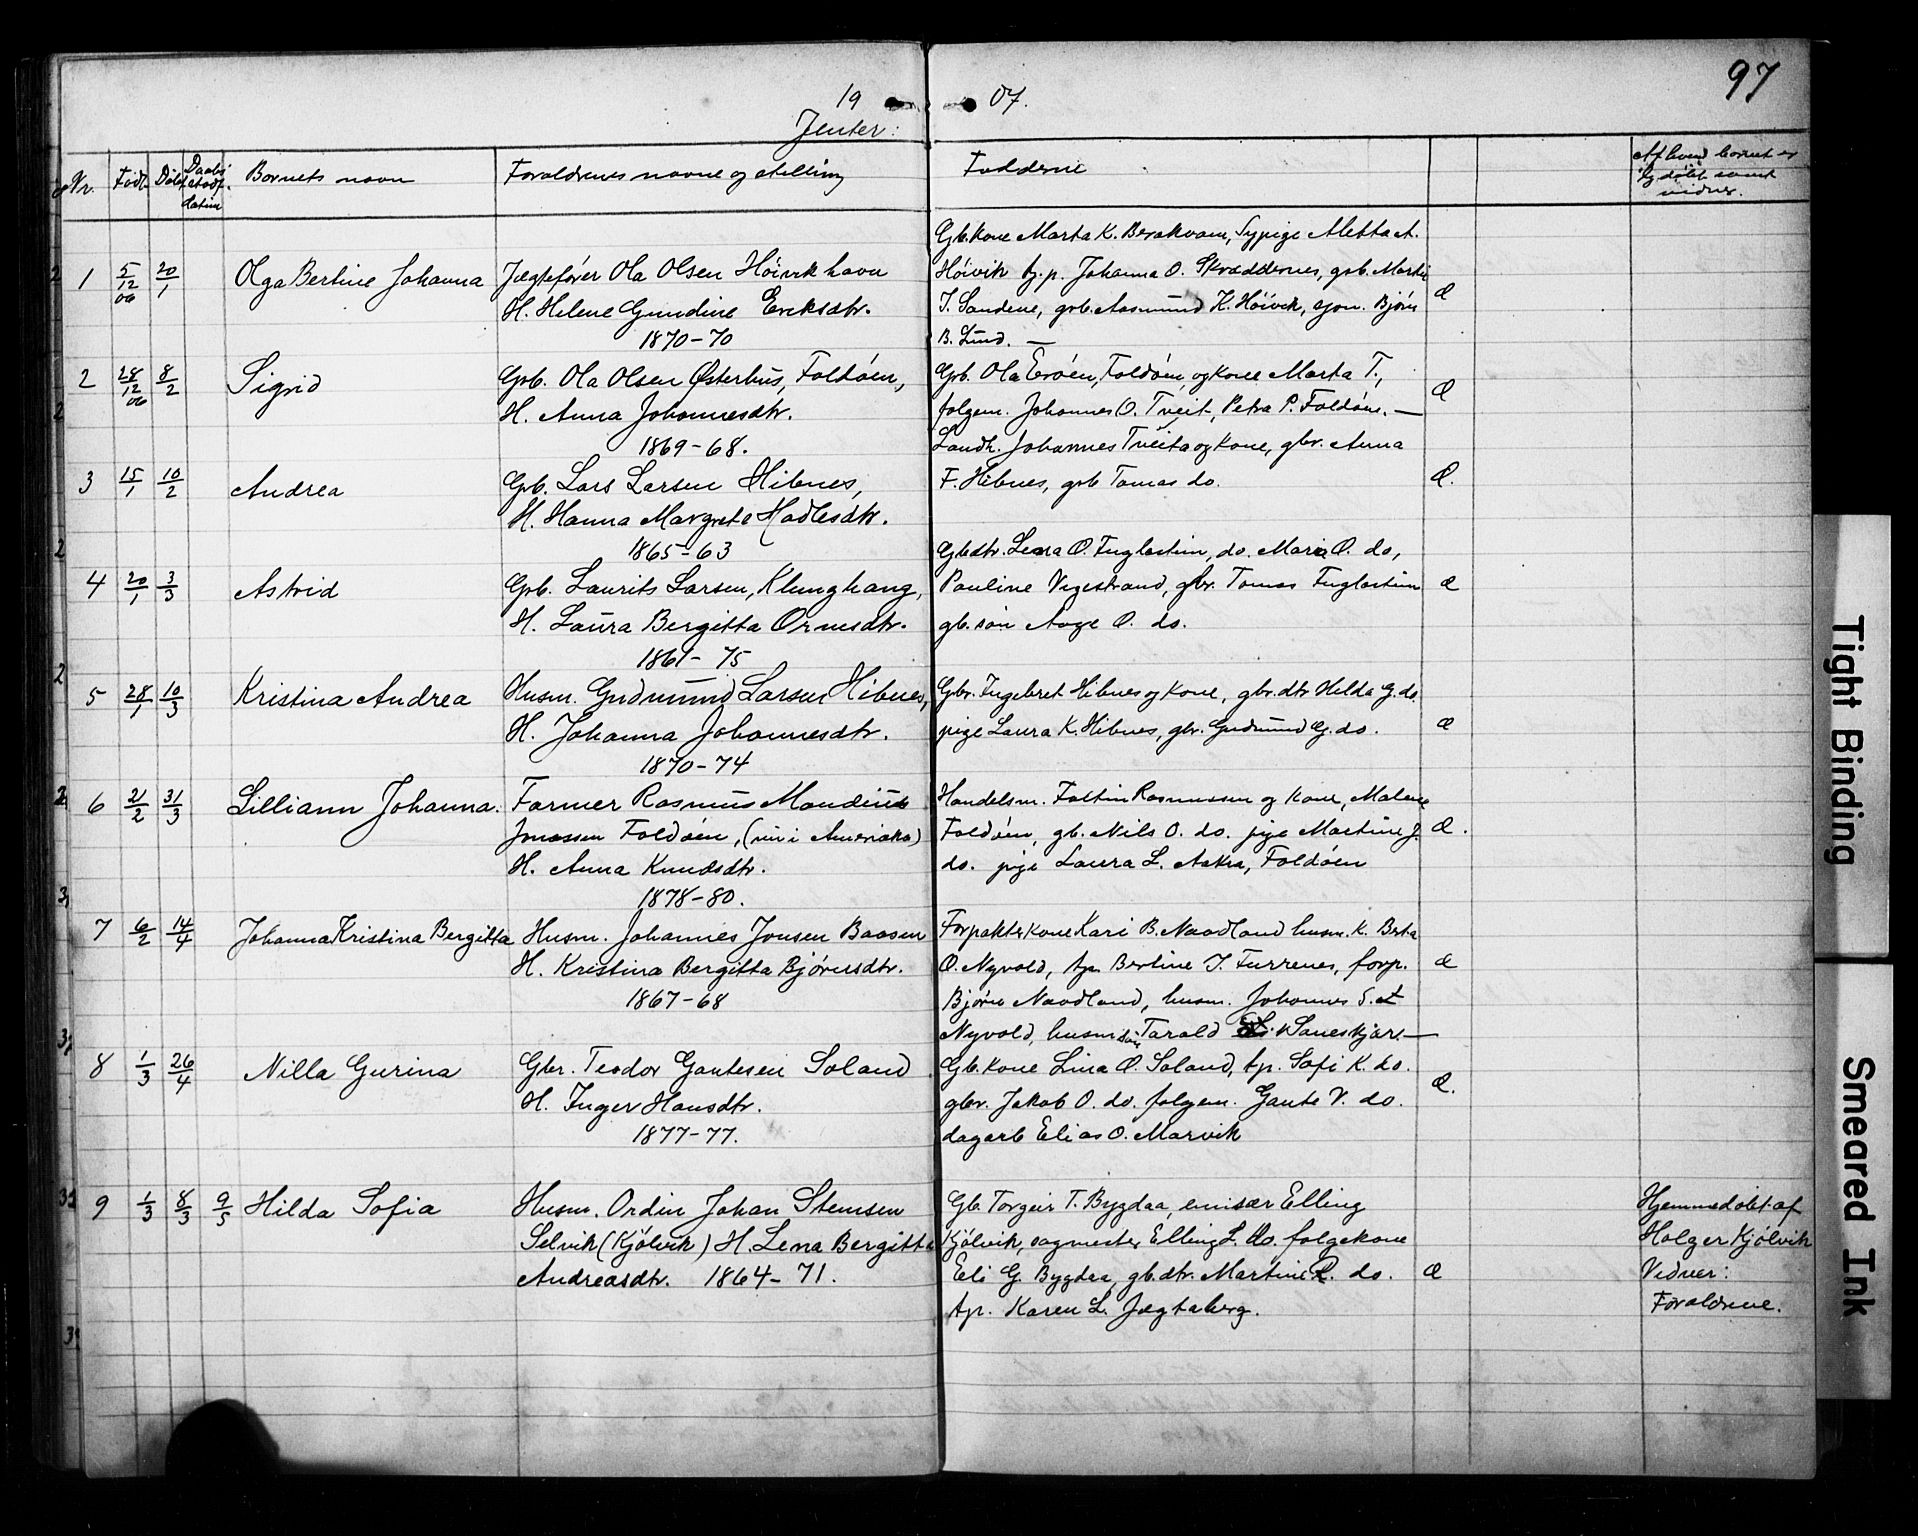 97
19 07.
Jenter:
Nr. Født Døbt Daabs stadf. datum Barnets navn Forældrenes navne og stilling Fadderne Af hvem barnet er hj. døbt samt vidner.
1 5/12 06 20/1 Olga Bertine Johanna Jægtefører Ola Olsen Høivik havn
H. Helene Gundine Eriksdtr.
1870-70
Gb. kone Marta K. Berakvam, Sypige Metta A.
Høivik tj.p. Johanna O. Skræddernes, grb. Martin
T. Sandene, grb. Aasmund K. Høivik, ejon. Bjørn
B. Lund. — Æ
2 28/12 06 8/2 Sigrid Grb. Ola Olsen Østerhus, Foldøen,
H. Anna Johannesdtr.
1869-68.
Grb. Ola Erøen, Foldøen, og kone Marta T.,
folgem. Johannes O. Tveit, Petra P. Foldøen. — Æ
3 15/1 10/2 Andrea Grb. Lars Larsen Hibnes,
H. Hanna Margrete Hadlesdtr.
1865-63
Landh. Johannes Tveita og kone, gbr. Anna
F. Hibnes, grb Tomas do. Æ.
4 20/1 3/3 Astrid Grb. Laurits Larsen, Klunghaug,
H. Laura Bergitta Ormsdtr.
1861-75
Gb.dtr. Lena O. Fuglastein, do. Maria O. do,
Pauline Vegestrand, gbr. Tomas Fuglastein
gb. søn Aage O. do. Æ
5 28/1 10/3 Kristina Andrea Husm. Gudmund Larsen Hibnes,
H. Johanna Johannesdtr.
1870-74
Gbr. Ingebret Hibnes og kone, gbr. dtr Hilda G. do.
pige Laura K. Hibnes, gbr. Gudmund G. do. Æ
6 21/2 31/3 Lilliann Johanna. Farmer Rasmus Mandius
Jonassen Foldøen, (nu i Amerika)
H. Anna Knudsdtr.
1878-80.
Handelsm. Faltin Rasmussen og kone, Malene
Foldøen, gb. Nils O. do. pige Martine J.
do. pige Laura L. Aakra, Foldøen Æ.
7 6/2 14/4 Johanna Kristina Bergitta Husm. Johannes Jonsen Baasen
H. Kristina Bergitta Bjørnsdtr.
1867-68
Forpakterkone Kari B. Naadland husm. k. Berta
O. Nyvold, tp. Bertine J. Furrenes, forp.
Bjørn Naadland, husm. Johannes S.
Nyvold, husm søn Tarald Saneskjær. — Æ
8 1/3 26/4 Nilla Gurina Gbr. Teodor Gautesen Soland
H. Inger Hansdtr.
1877-77.
Gb. kone Lina O. Soland, tp. Sofi K. do.
gbr. Jakob O. do. folgem. Gaute V. do.
dagarb Elias O. Marvik Æ.
9 1/3 8/3 9/5 Hilda Sofia Husm. Ordin Johan Stemsen
Selvik (Kjølvik) H. Lena Bergitta
Andreasdtr. 1864-71.
Gb. Torgeir T. Bygdaa, emisær Elling
Kjølvik, sagmester Elling L. do. folgekone
Eli G. Bygdaa, gb. dtr. Martine R. do.
tp. Karen L. Jægtaberg. Æ
Hjemmedøbt af
Holger Kjølvik
Vidner:
Forældrene.
Tight Binding
Smeared Ink